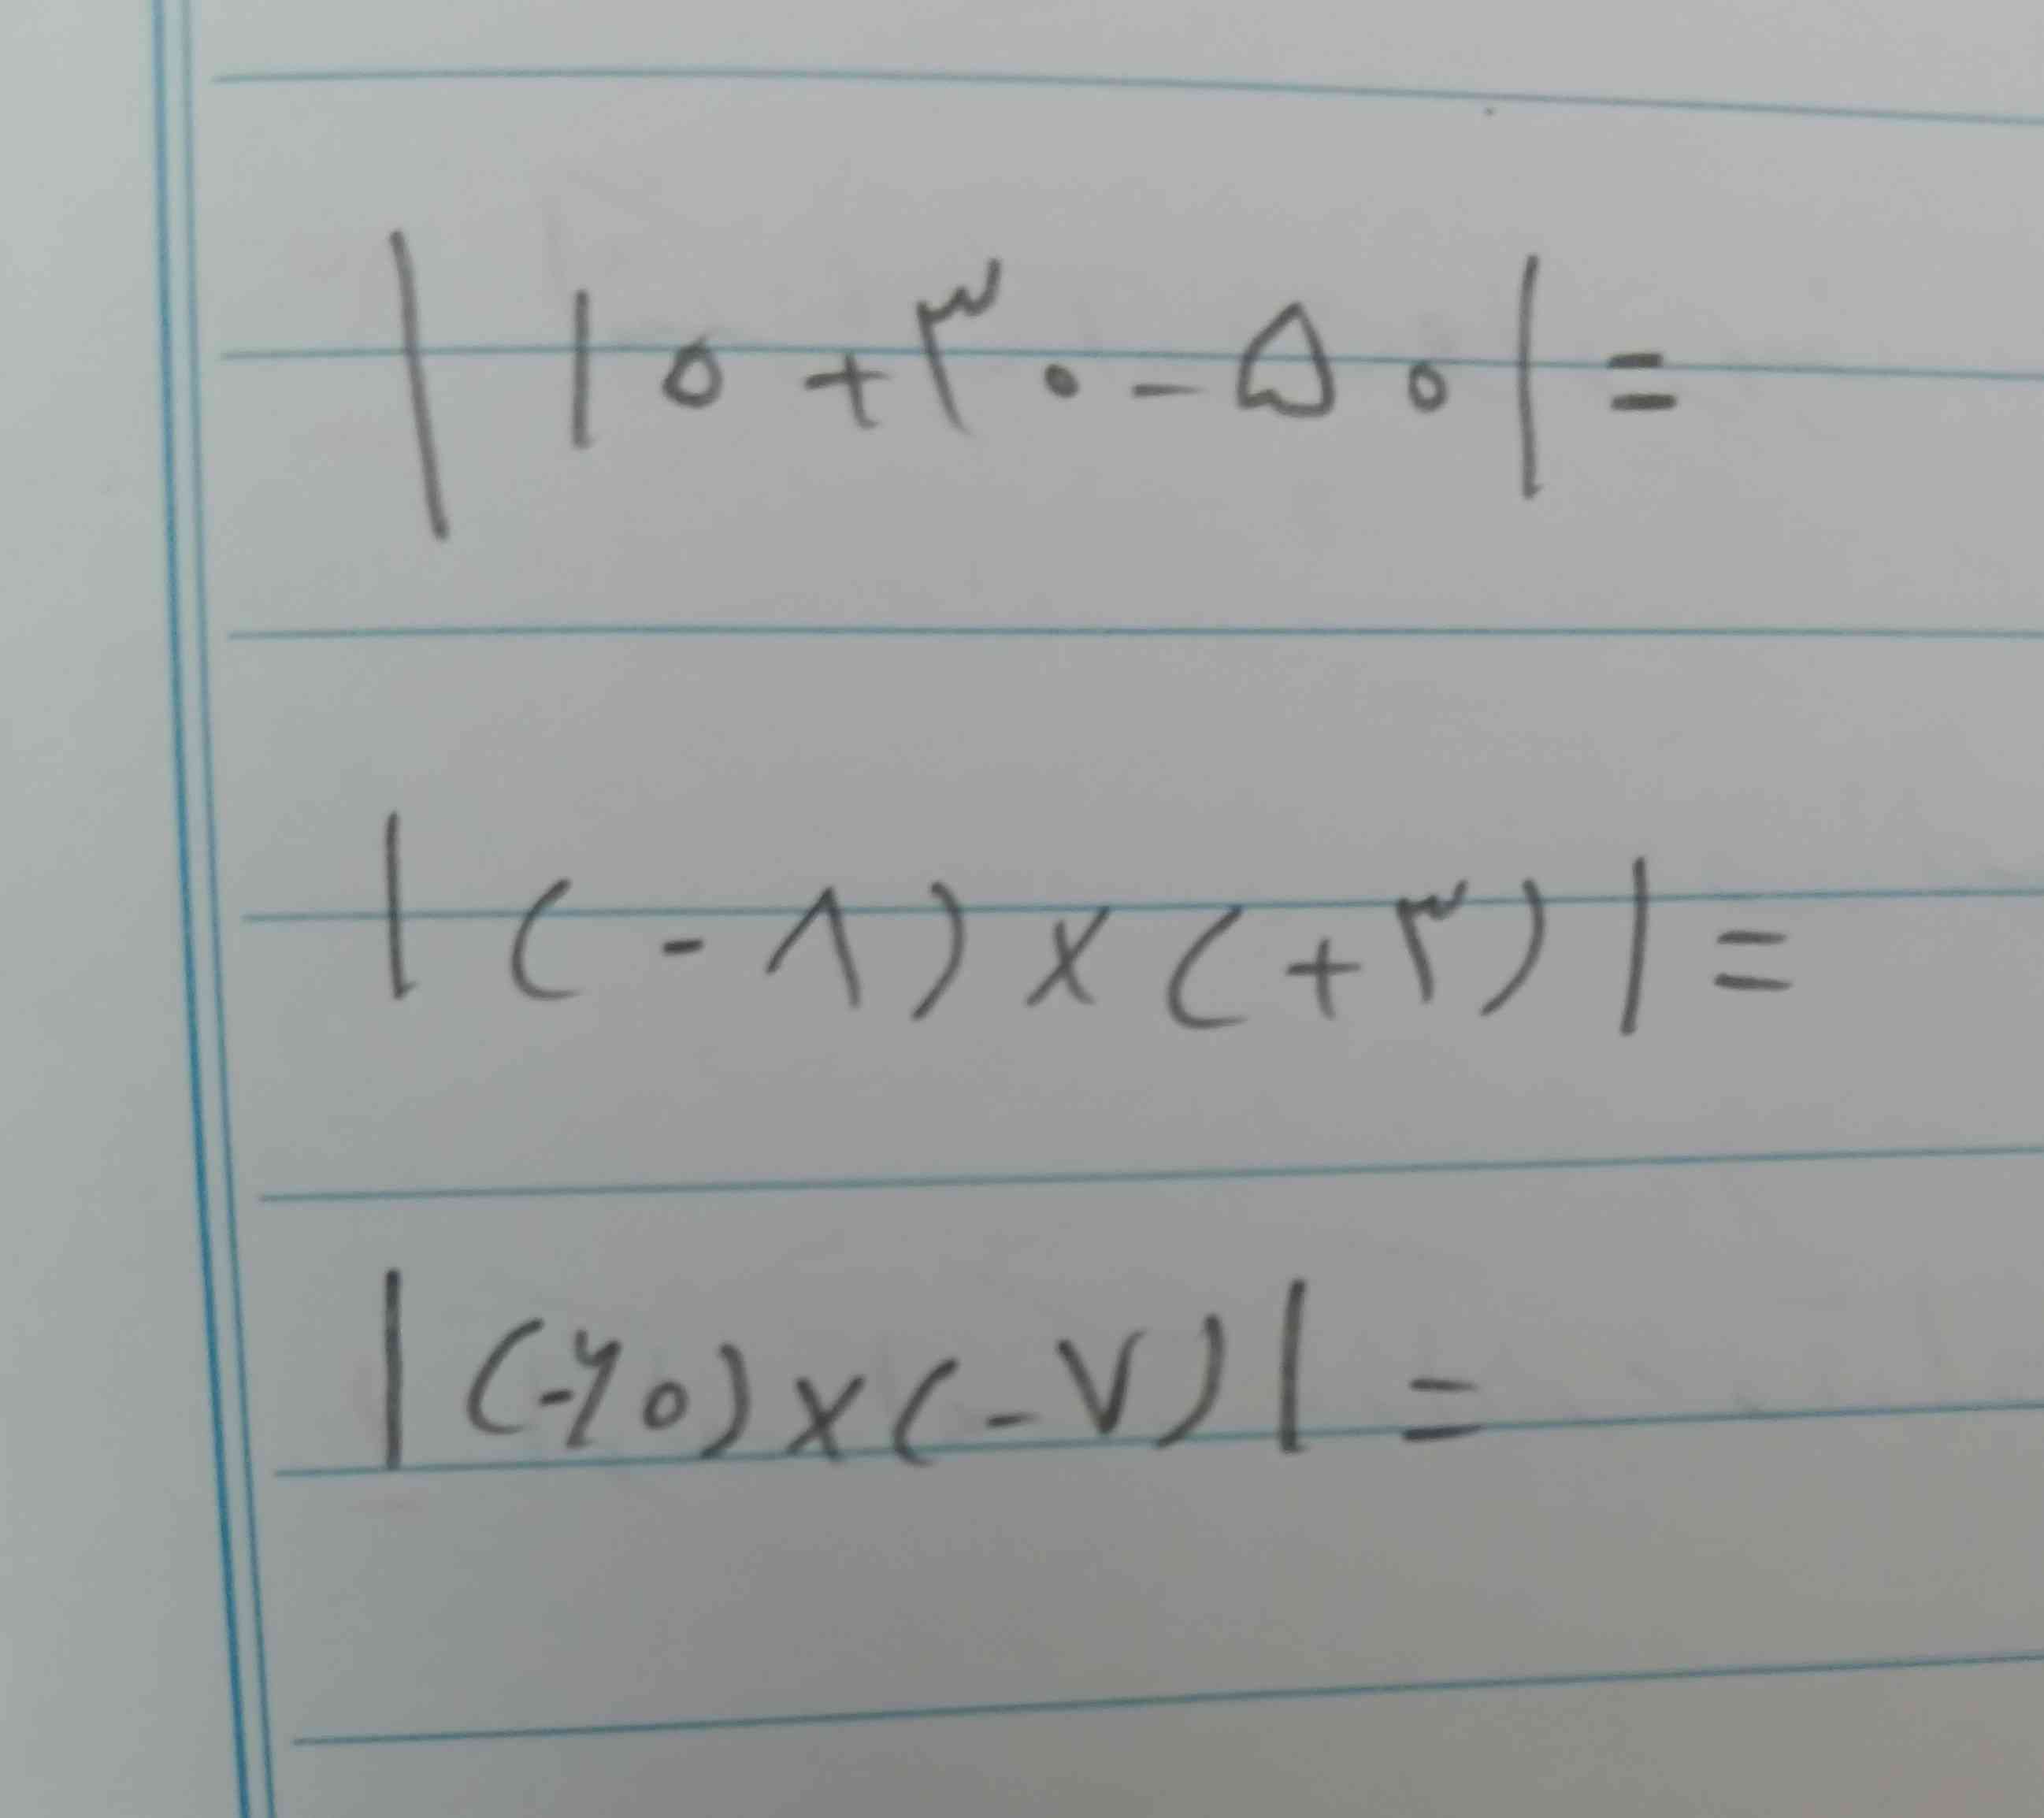 | ۱۰ + ۳۰ - ۵۰ | =
| (-۸) × (+۳) | =
| (-۶۰) × (-۷) | =